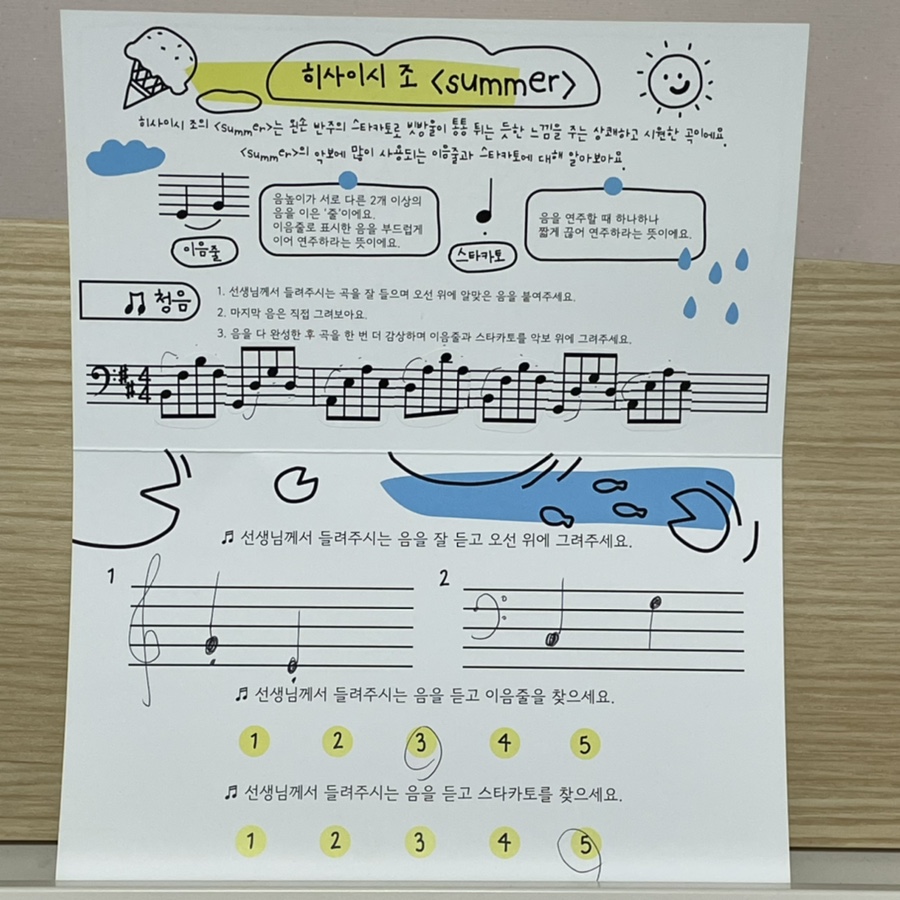 히사이시 조 <summer>
히사이시 조의 <summer>는 왼손 반주의 스타카토로 빗방울이 통통 튀는 듯한 느낌을 주는 상쾌하고 시원한 곡이에요.
<summer>의 악보에 많이 사용되는 이음줄과 스타카토에 대해 알아보아요.
음높이가 서로 다른 2개 이상의
음을 이은 '줄'이에요.
이음줄로 표시한 음을 부드럽게
이어 연주하라는 뜻이에요.
이음줄
음을 연주할 때 하나하나
짧게 끊어 연주하라는 뜻이에요.
스타카토
청음
1. 선생님께서 들려주시는 곡을 잘 들으며 오선 위에 알맞은 음을 붙여주세요.
2. 마지막 음은 직접 그려보아요.
3. 음을 다 완성한 후 곡을 한 번 더 감상하며 이음줄과 스타카토를 악보 위에 그려주세요.
4
4
♬ 선생님께서 들려주시는 음을 잘 듣고 오선 위에 그려주세요.
1
2
♬ 선생님께서 들려주시는 음을 듣고 이음줄을 찾으세요.
1 2 3 4 5
♬ 선생님께서 들려주시는 음을 듣고 스타카토를 찾으세요.
1 2 3 4 5